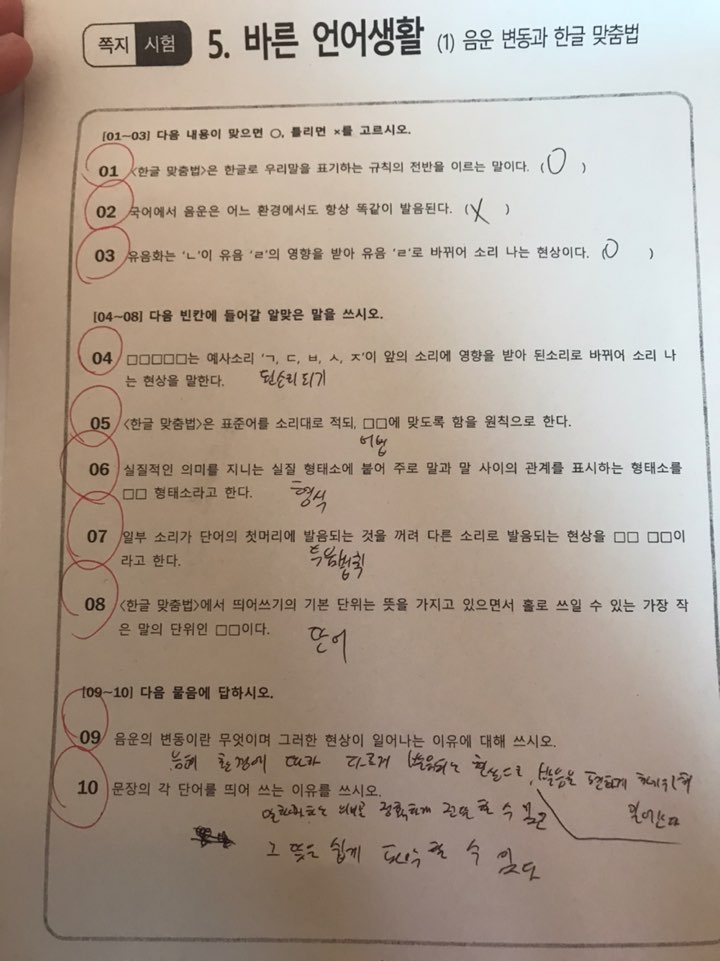 쪽지 시험 5. 바른 언어생활 (1) 음운 변동과 한글 맞춤법
[01~03] 다음 내용이 맞으면 ○, 틀리면 ×를 고르시오.
01 〈한글 맞춤법〉은 한글로 우리말을 표기하는 규칙의 전반을 이르는 말이다. ( O )
02 국어에서 음운은 어느 환경에서도 항상 똑같이 발음된다. ( X )
03 유음화는 'ㄴ'이 유음 'ㄹ'의 영향을 받아 유음 'ㄹ'로 바뀌어 소리 나는 현상이다. ( O )
[04~08] 다음 빈칸에 들어갈 알맞은 말을 쓰시오.
04 □□□□□는 예사소리 'ㄱ, ㄷ, ㅂ, ㅅ, ㅈ'이 앞의 소리에 영향을 받아 된소리로 바뀌어 소리 나
는 현상을 말한다. 된소리되기
05 〈한글 맞춤법〉은 표준어를 소리대로 적되, □□에 맞도록 함을 원칙으로 한다.
어법
06 실질적인 의미를 지니는 실질 형태소에 붙어 주로 말과 말 사이의 관계를 표시하는 형태소를
□□ 형태소라고 한다. 형식
07 일부 소리가 단어의 첫머리에 발음되는 것을 꺼려 다른 소리로 발음되는 현상을 □□ □□이
라고 한다. 두음법칙
08 〈한글 맞춤법〉에서 띄어쓰기의 기본 단위는 뜻을 가지고 있으면서 홀로 쓰일 수 있는 가장 작
은 말의 단위인 □□이다. 단어
[09~10] 다음 물음에 답하시오.
09 음운의 변동이란 무엇이며 그러한 현상이 일어나는 이유에 대해 쓰시오.
환경에 따라 다르게 발음되는 현상으로, 발음을 편하게 하기위해
10 문장의 각 단어를 띄어 쓰는 이유를 쓰시오.
일어난다
정확하게 전달 할 수 있고
그 뜻을 쉽게 파악 할 수 있다